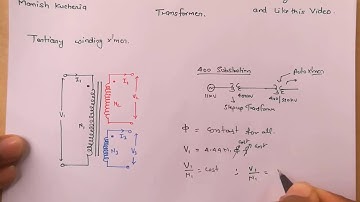 Manish Kucheria
Transformer.
and Like this Video.
Tertiary winding x'mer.
I₁
V₁
N₁
I₂
N₂
V₂
I₃
N₃
V₃
400 Substation
Auto X'mer
11KV
400
220KV
Stepup Tranform
Φ = Constant for all.
V₁ = 4.44 N₁ Φ
cost
cost
V₁/N₁ = cost ∴ V₁/N₁ =